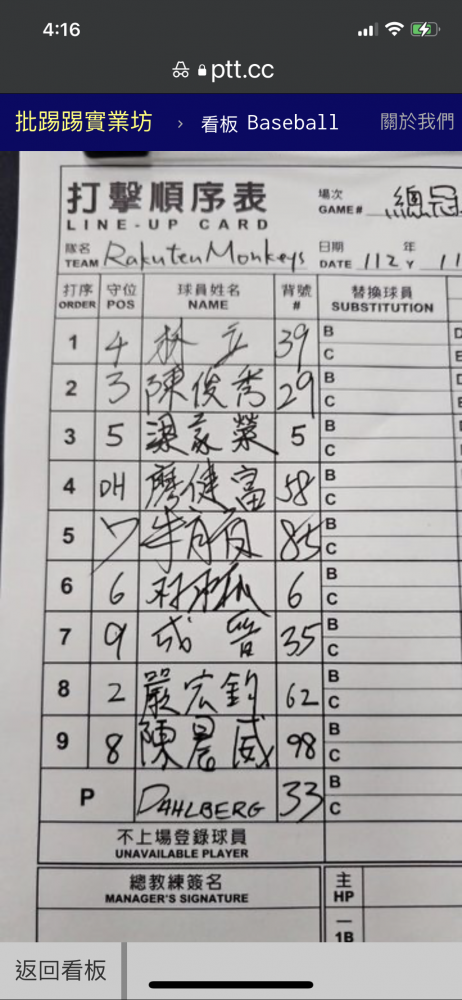 4:16
ptt.cc
批踢踢實業坊 › 看板 Baseball 關於我們
打擊順序表 場次
LINE-UP CARD GAME# 總冠
隊名 日期 年
TEAM Rakuten Monkeys DATE 112 Y 11
打序 守位 球員姓名 背號 替換球員
ORDER POS NAME # SUBSTITUTION
1 4 林立 39 B
C
2 3 陳俊秀 29 B
C
3 5 梁家榮 5 B
C
4 DH 廖健富 58 B
C
5 7 85 B
C
6 6 6 B
C
7 9 成晉 35 B
C
8 2 嚴宏鈞 62 B
C
9 8 陳晨威 98 B
C
P DAHLBERG 33 B
C
不上場登錄球員
UNAVAILABLE PLAYER
總教練簽名 主
MANAGER'S SIGNATURE HP
一
1B
返回看板